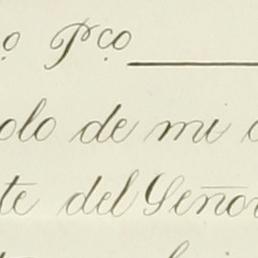 o Pco
olo de mi
te del Señor